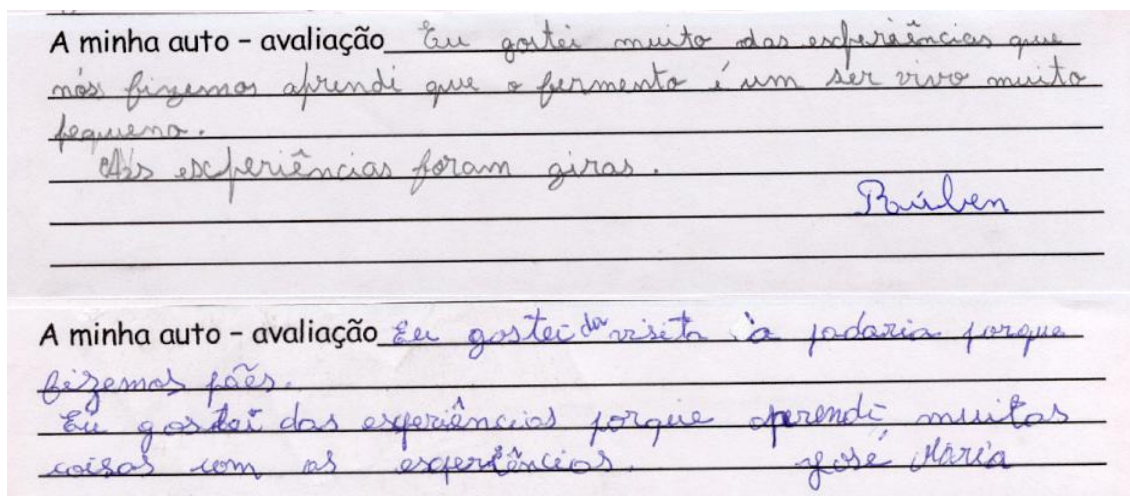 A minha auto – avaliação Eu gostei muito das experiências que
nós fizemos aprendi que o fermento é um ser vivo muito
pequeno.
As experiências foram giras.
Rúben
A minha auto – avaliação Eu gostei da visita à padaria porque
fizemos pães.
Eu gostei das experiências porque aprendi muitas
coisas com as experiências. José Maria